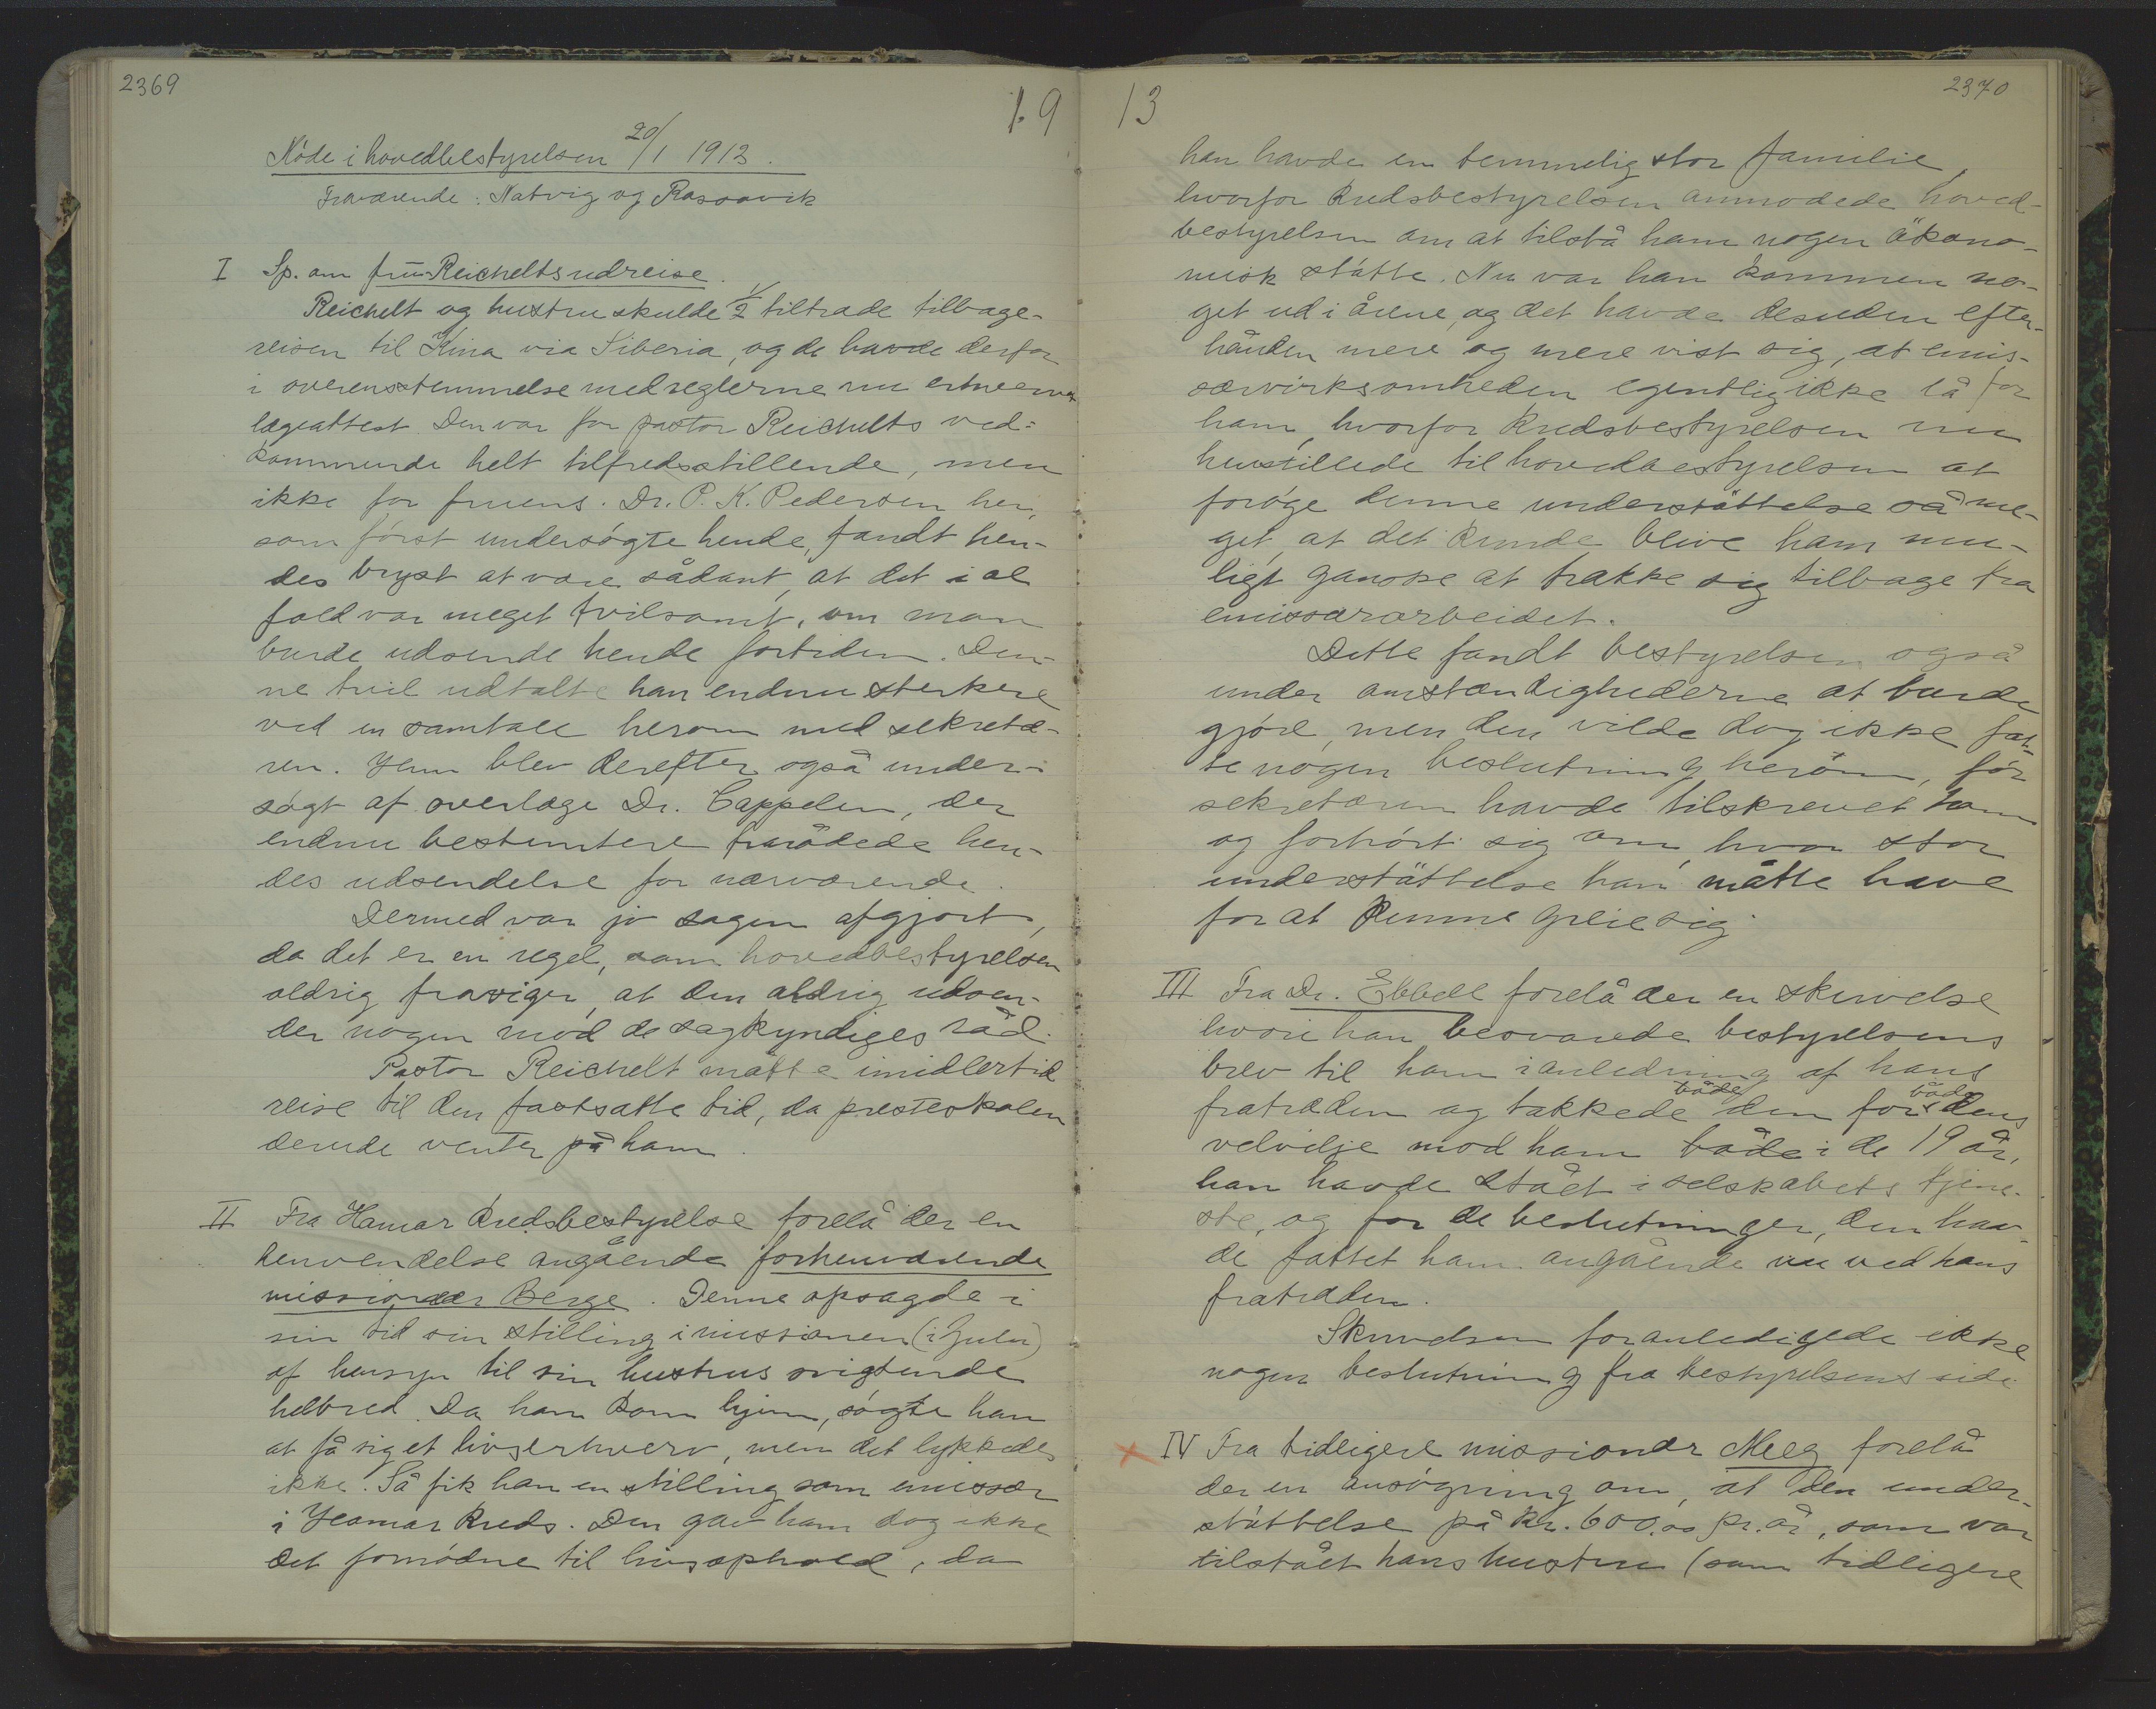 2369
1.9
Möde i hovedbestyrelsen 20/1 1913.
Fraværende: Natvig og Rasoavik
I Sp. om fru Reichelts udreise.
Reichelt og hustru skulde 1/2 tiltræde tilbage-
reisen til Kina via Siberia, og de havde derfor
i overensstemmelse med reglerne nu erhvervet
lægeattest. Den var for pastor Reichelts ved-
kommende helt tilfredsstillende, men
ikke for fruens. Dr. P. K. Pedersen her,
som först undersögte hende, fandt hen-
des bryst at være sådant, at det i al
fald var meget tvilsomt, om man
burde udsende hende fortiden. Den-
ne tvil udtalte han endnu sterkere
ved en samtale herom med sekretæ-
ren. Hun blev derefter også under-
sögt af overlæge Dr. Cappelen, der
endnu bestemtere frarådede hen-
des udsendelse for nærværende.
Dermed var jo sagen afgjort,
da det er en regel, som hovedbestyrelsen
aldrig fraviger, at den aldrig udsen-
der nogen mod de sagkyndiges råd.
Pastor Reichelt måtte imidlertid
reise til den fastsatte tid, da presteskolen
derude venter på ham.
II Fra Hamar kredsbestyrelse forelå der en
henvendelse angående forhenværende
missionær Berge. Denne opsagde i
sin tid sin stilling i missionen (i Zulu)
af hensyn til sin hustrus svigtende
helbred. Da han kom hjem, sögte han
at få sig et livserhverv, men det lykkedes
ikke. Så fik han en stilling som emissær
i Hamar kreds. Den gav ham dog ikke
det fornödne til livsophold, da
13
2370
han havde en temmelig stor familie,
hvorfor kredsbestyrelsen anmodede hoved-
bestyrelsen om at tilstå ham nogen ökono-
misk stötte. Nu var han kommen no-
get ud i årene, og det havde desuden efter-
hånden mere og mere vist sig, at emis-
særvirksomheden egentlig ikke lå for
ham, hvorfor kredsbestyrelsen nu
henstillede til hovedbestyrelsen at
foröge denne understöttelse så me-
get, at det kunde blive ham mu-
ligt ganske at trække sig tilbage fra
emissærarbeidet.
Dette fandt bestyrelsen også
under omstændighederne at burde
gjöre, men den vilde dog ikke fat-
te nogen beslutning herom, för
sekretæren havde tilskrevet ham
og forhört sig om, hvor stor
understöttelse han måtte have
for at kunne greie sig.
III Fra Dr. Ebbell forelå der en skrivelse
hvori han besvarede bestyrelsens
brev til ham i anledning af hans
fratræden og takkede både den for både dens
velvilje mod ham både i de 19 år,
han havde stået i selskabets tjene-
ste, og for de beslutninger, den hav-
de fattet ham angående nu ved hans
fratræden.
Skrivelsen foranledigede ikke
nogen beslutning fra bestyrelsens side
x IV Fra tidligere missionær Meeg forelå
der en ansögning om, at den under-
stöttelse på kr. 600.00 pr. år, som var
tilstået hans hustru (som tidligere